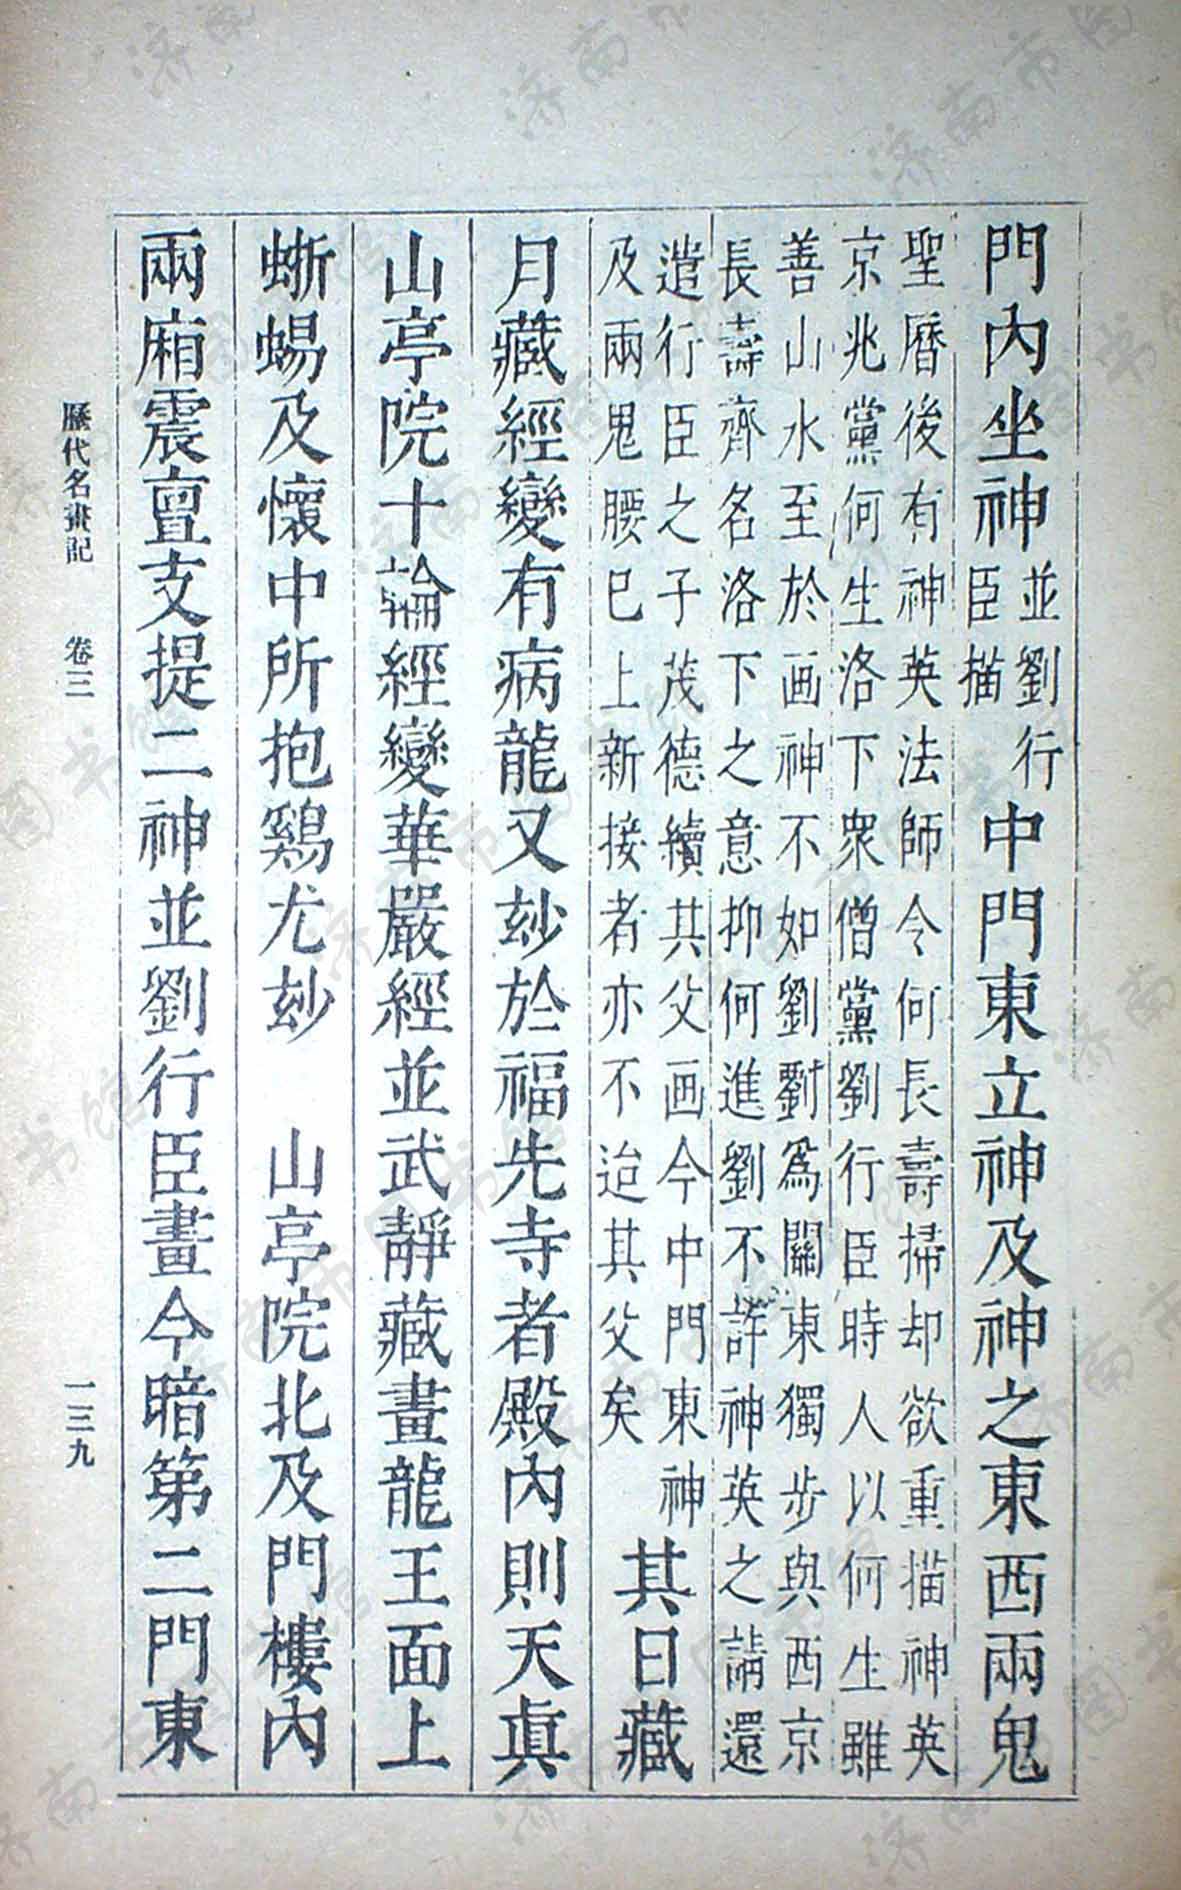 門內坐神並劉行臣描中門東立神及神之東西兩鬼
聖曆後有神英法師令何長壽掃却欲重描神英
京兆黨何生洛下衆僧黨劉行臣時人以何生雖
善山水至於画神不如劉劉爲關東獨步與西京
長壽齊名洛下之意抑何進劉不許神英之請還
遣行臣之子茂德續其父画今中門東神
及兩鬼腰巳上新接者亦不迨其父矣
其日藏
月藏經變有病龍又玅於福先寺者殿內則天眞
山亭院十論經變華嚴經並武靜藏畫龍王面上
蜥蜴及懷中所抱鷄尤玅 山亭院北及門樓內
兩廂震亶支提二神並劉行臣畫今暗第二門東
歷代名畫記 卷三 一三九